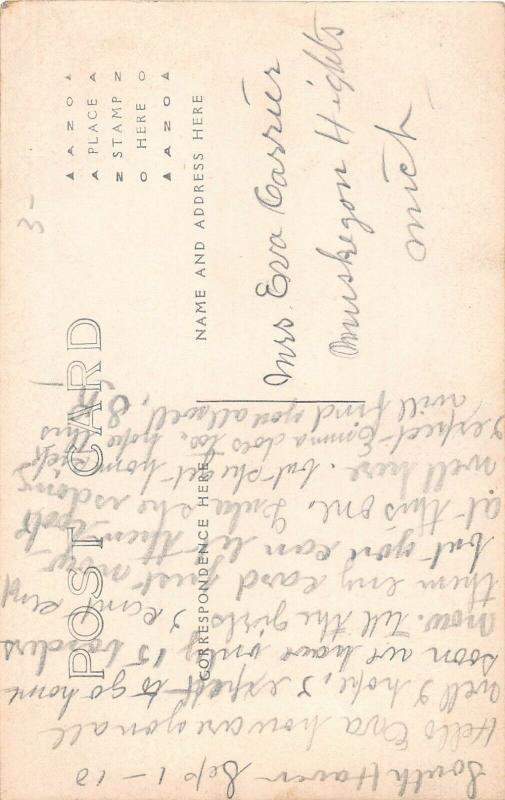 POST CARD
CORRESPONDENCE HERE
NAME AND ADDRESS HERE
AZOA
PLACE
STAMP
HERE
AZOA
3-
Mrs. Eva Carrier
Muskegon Hights
Mich
South Haven Sep 1-10
Hello Eva how are you all
well I hope, I expect to go home
soon we have only 15 borders
now. Tell the girls I cant send
them eny card just now
but you can let them look
at this one. Lulu she is doing
well here. but she get home sick
I expect Emma does too, hope this
will find you all well,